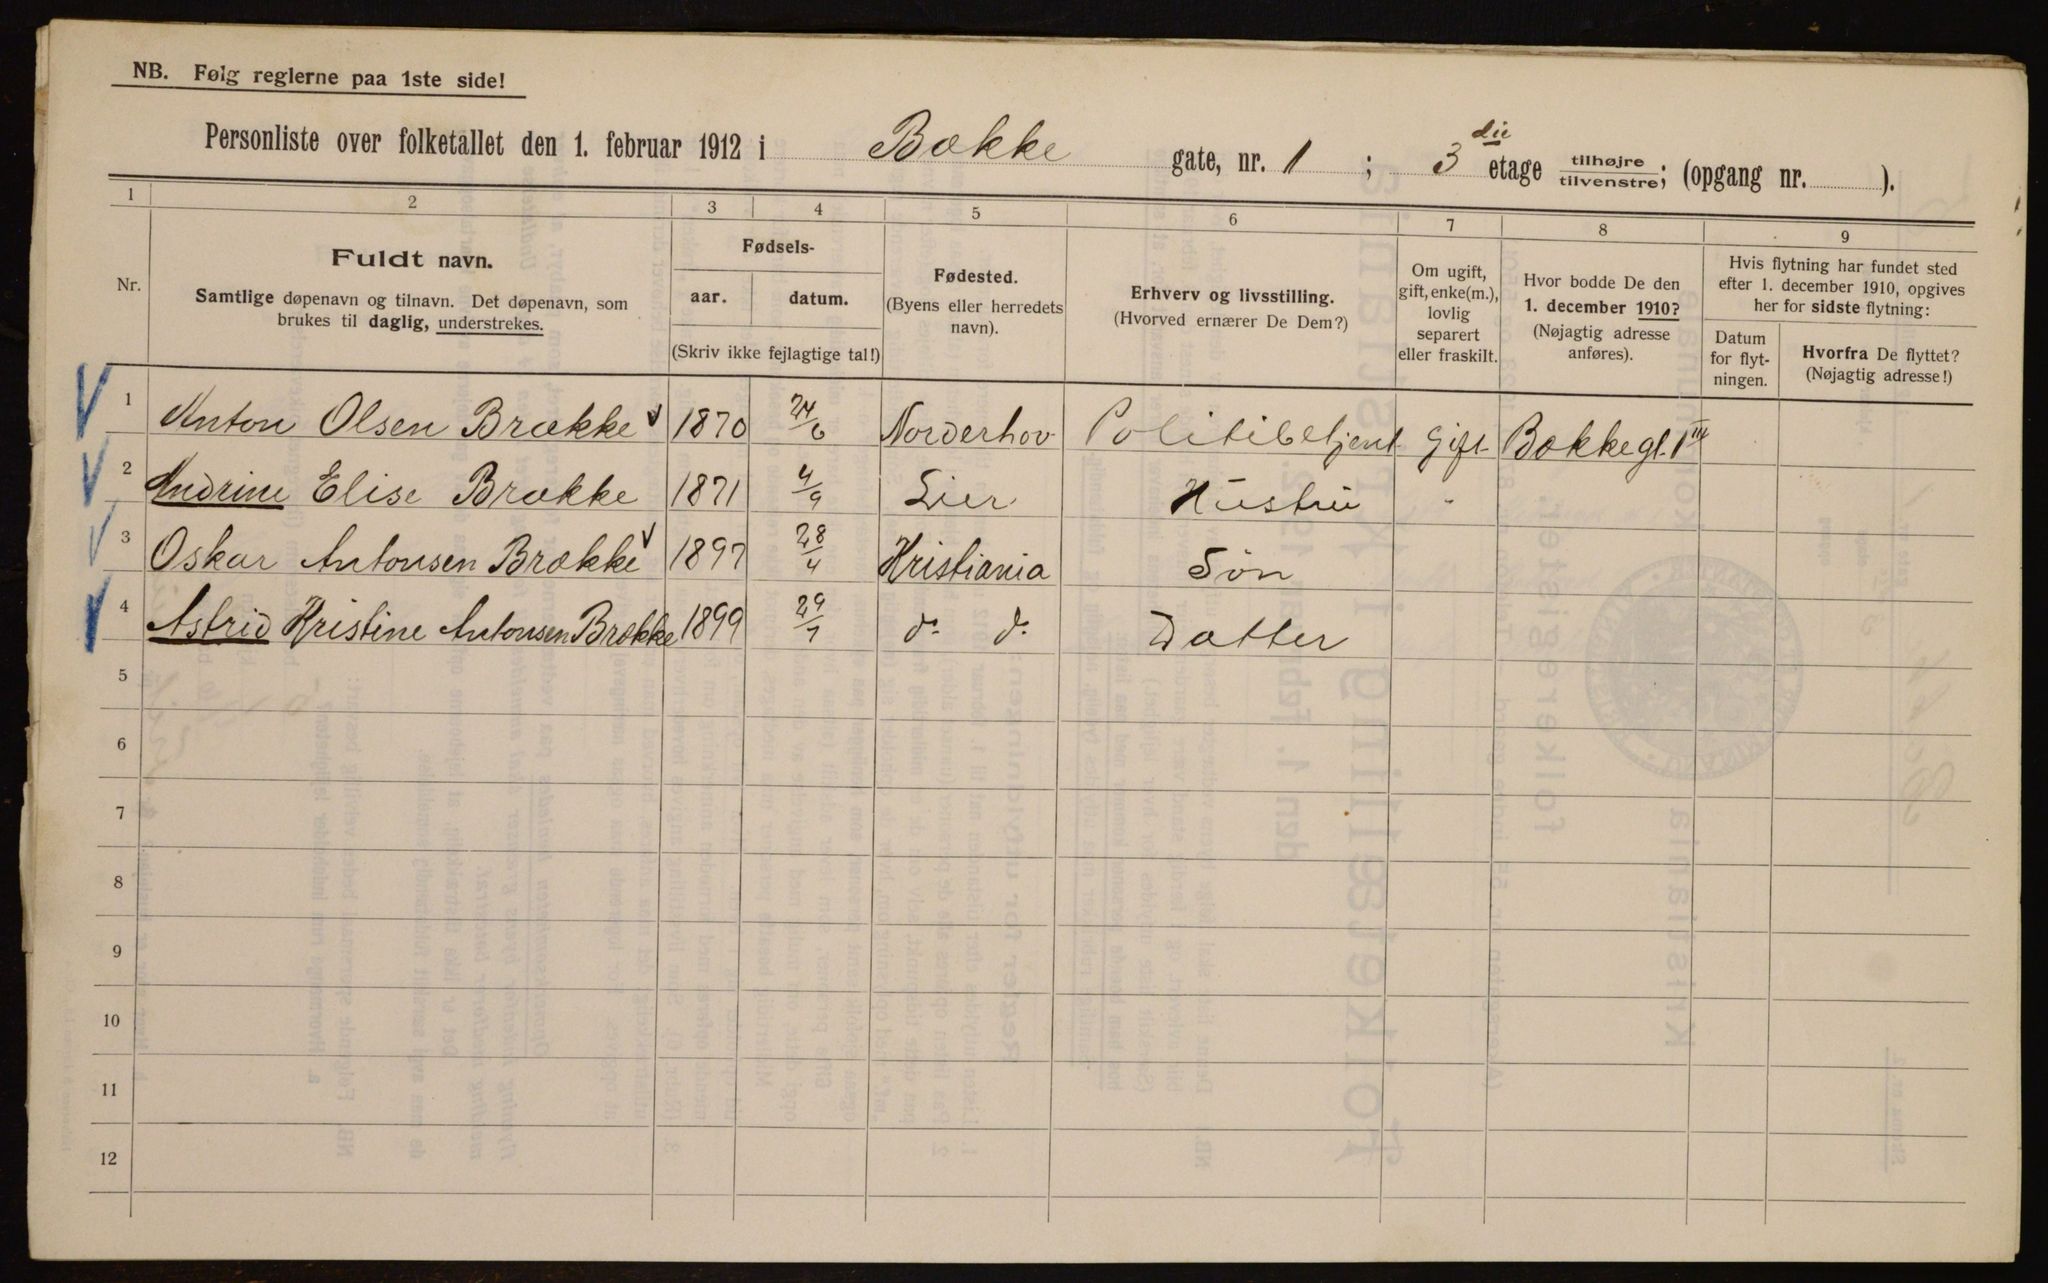 NB. Følg reglerne paa 1ste side!
Personliste over folketallet den 1. februar 1912 i Bække gate, nr. 1 ; 3 die etage tilhøjre/tilvenstre; (opgang nr. ).
1 2 3 4 5 6 7 8 9
Nr.
Fuldt navn.
Samtlige døpenavn og tilnavn. Det døpenavn, som
brukes til daglig, understrekes.
Fødsels-
aar. datum.
(Skriv ikke fejlagtige tal!)
Fødested.
(Byens eller herredets
navn).
Erhverv og livsstilling.
(Hvorved ernærer De Dem?)
Om ugift,
gift, enke(m.),
lovlig
separert
eller fraskilt.
Hvor bodde De den
1. december 1910?
(Nøjagtig adresse
anføres).
Hvis flytning har fundet sted
efter 1. december 1910, opgives
her for sidste flytning:
Datum
for flyt-
ningen.
Hvorfra De flyttet?
(Nøjagtig adresse!)
1 Anton Olsen Brække 1870 24/6 Norderhov Politibetjent Gift Bækkegt. 1 III
2 Andrine Elise Brække 1871 4/9 Lier Hustru "
3 Oskar Antonsen Brække 1897 28/4 Kristiania Søn
4 Astrid Kristine Antonsen Brække 1899 29/7 d. d. Datter
5
6
7
8
9
10
11
12